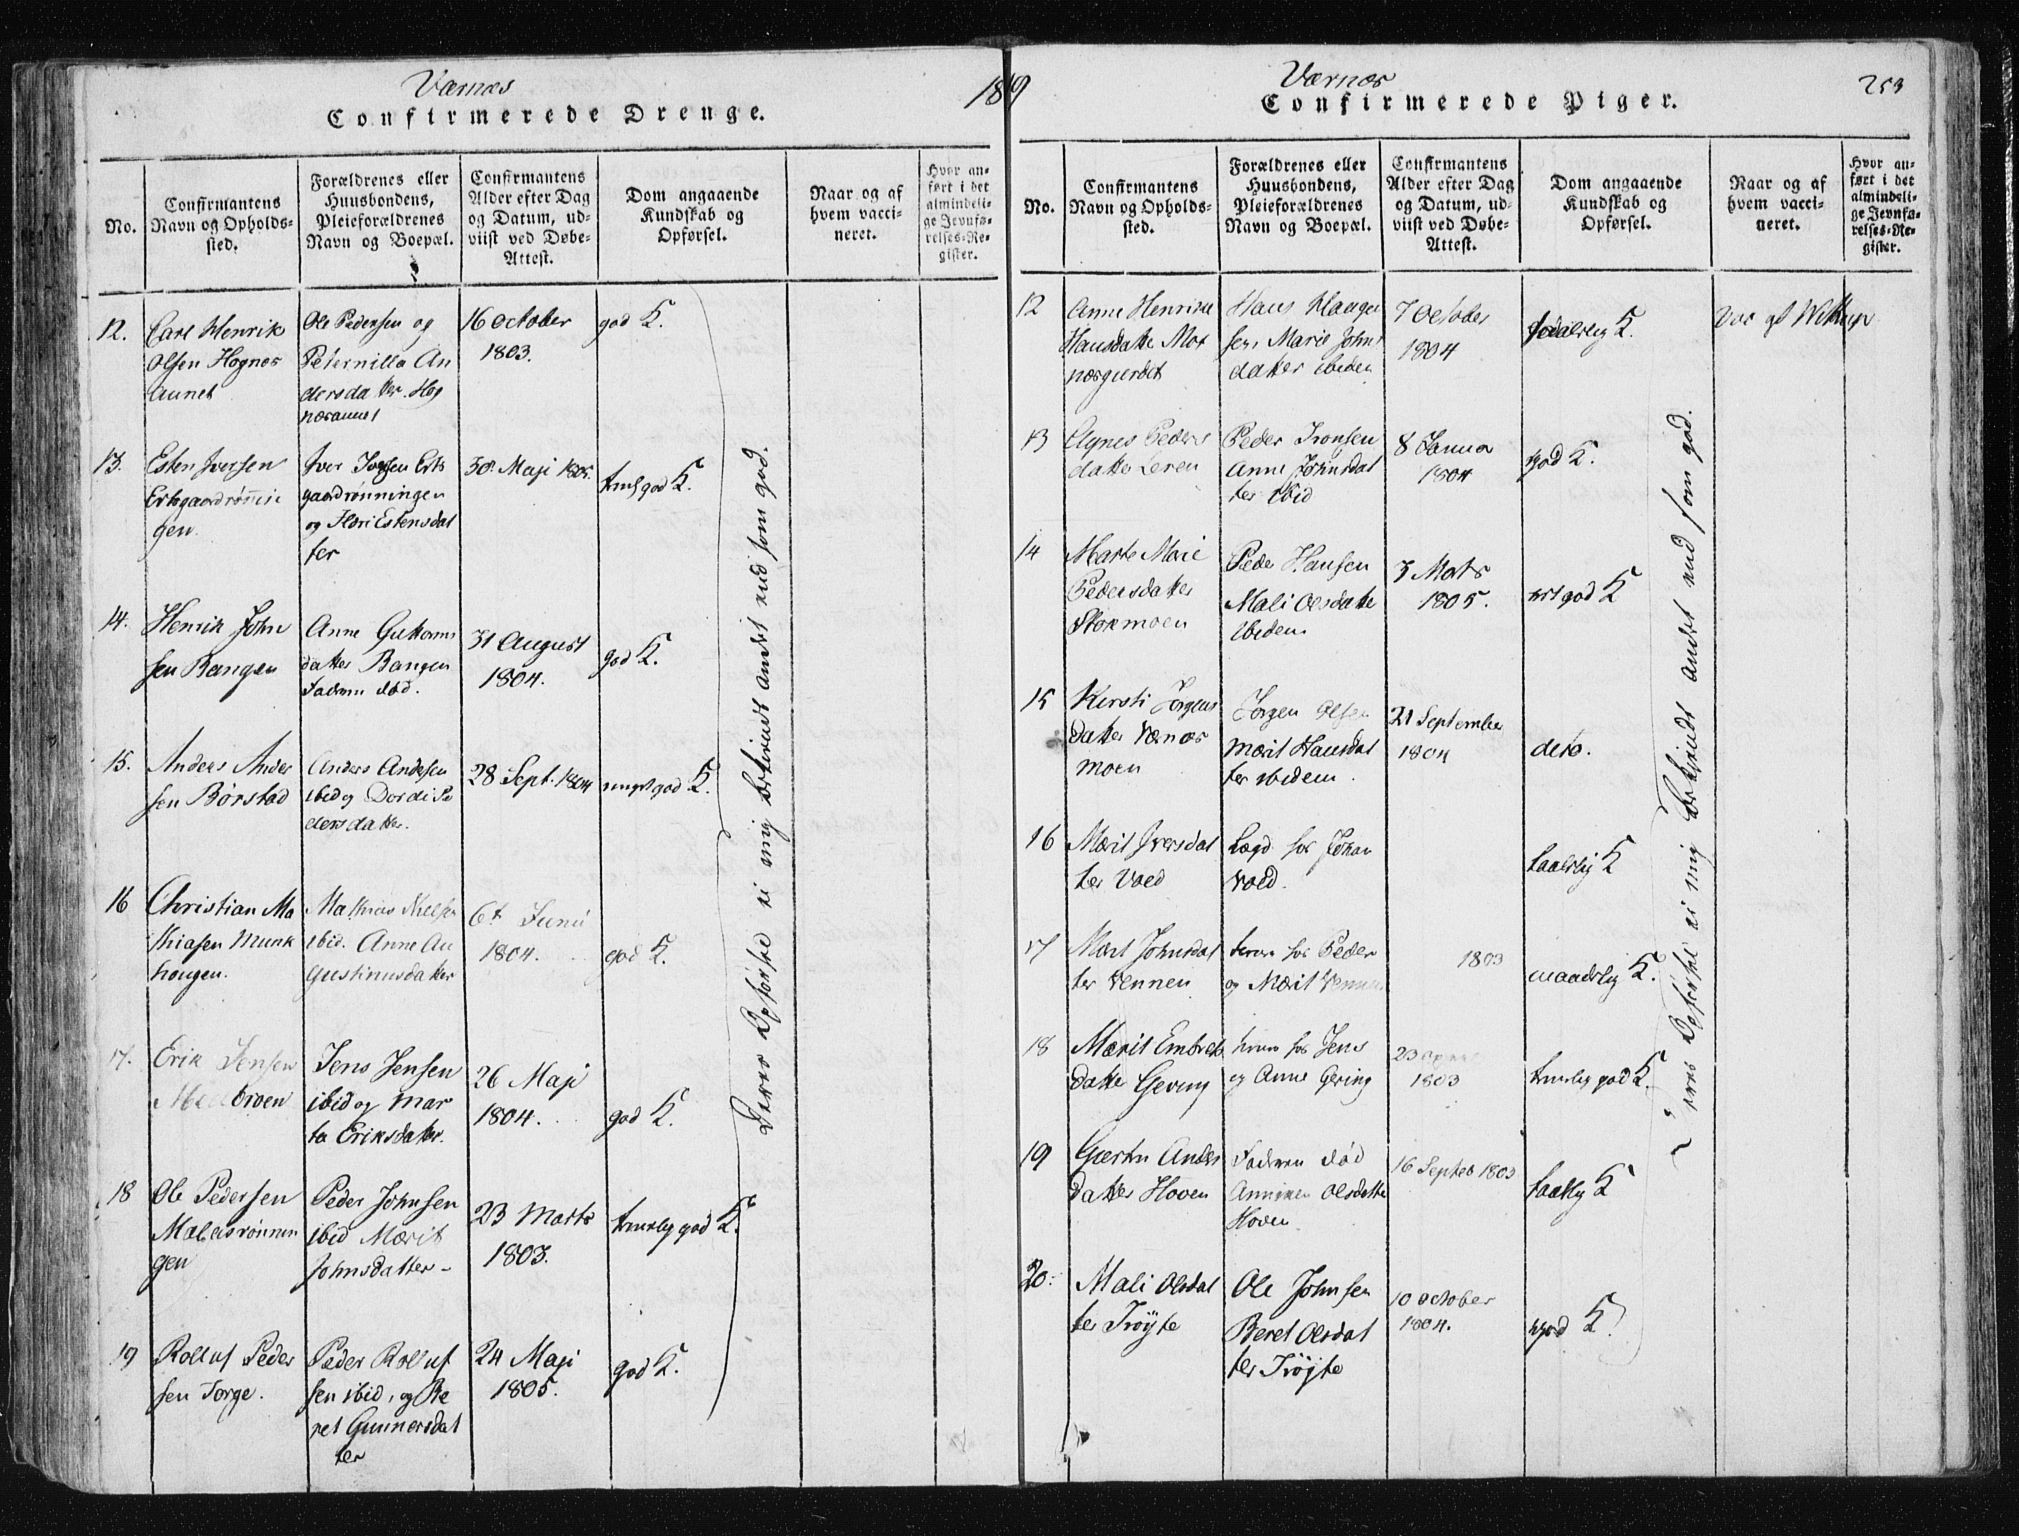 Værnes
1819
Confirmerede Drenge.
No.
Confirmantens
Navn og Opholds-
sted.
Forældrenes eller
Huusbondens,
Pleieforældrenes
Navn og Boepæl.
Confirmantens
Alder efter Dag
og Datum, ud-
viist ved Døbe-
Attest.
Dom angaaende
Kundskab og
Opførsel.
Naar og af
hvem vacci-
neret.
Hvor an-
ført i det
almindeli-
ge Jevnfø-
relses-Re-
gister.
12.
Carl Henrik
Olsen Hognes
aunet
Ole Pedersen og
Peternilla An
dersdatter Hog
næsaunet
16 October
1803.
god K.
13.
Esten Iversen
gen.
Iver
og Estensdat
ter
30. Maji 1805.
god K.
14.
Henrik John
sen Bangen
Anne
datter Bangen
Faderen død.
31 August
1804.
god K.
15.
Anders Ander
sen Børstad
Anders Andersen
ibid og Dordi Pe
dersdatter.
28 Sept. 1804
god K.
16
Christian Ma
thiasen Munk
hougen.
Mathias Nielsen
ibid. Anne Au
gustinusdatter
6t Junii
1804.
god K.
17.
Erik Jensen
Jens Jensen
ibid og Mar
ta Eriksdatter.
26 Maji
1804.
god K.
18
Ole Pedersen
gen
Peder Johnsen
ibid Mærit
Johnsdatter
23 Marts
1803.
temelig god K.
19
Rolluf Peder
sen Torge.
Peder Rolluf
sen ibid, og Be
ret Gunnersdat
ter
24 Maji
1805.
god K.
Deres Opførsel ei mig bekiendt andet end som god.
Værnes
253
Confirmerede Piger.
No.
Confirmantens
Navn og Opholds-
sted.
Forældrenes eller
Huusbondens,
Pleieforældrenes
Navn og Boepæl.
Confirmantens
Alder efter Dag
og Datum, ud-
viist ved Døbe-
Attest.
Dom angaaende
Kundskab og
Opførsel.
Naar og af
hvem vacci-
neret.
Hvor an-
ført i det
almindeli-
ge Jevnfø-
relses-Re-
gister.
12
Anne Henrikke
Hansdatter
Hans Haagen
sen, Marie Johns
datter ibidem
7 October
1804
K.
13
Agnes Peders
datter Leren
Peder Tronsen
Anne Johnsdat
ter ibid
8 Janua
1804
god K.
14
Marte Marie
Pedersdatter
Stokmoen
Peder Hansen
Mali Olsdatter
ibidem
3 Mats
1805.
god K
15
Kirsti Jørgens
datter Værnes
moen
Jørgen Olsen
Mærit Hansdat
ter ibidem.
21 September
1804
deto.
16
Mærit Iversdat
ter Vold
Lægd hos Johan
Vold.
taalelig K
17
Mærit Johnsdat
ter Vennen
hos Peder
og Mærit Vennen
1803
maadelig K.
18
Mærit Embrets
datter Geving
hos Jens
og Anne Geving
23 April
1803
temelig god K.
19
Anders
datter Hoven
Faderen død
Anniken Olsdatter
Hoven
16 Septeb 1803
taalelig K
20.
Mali Olsdat
ter Trøyte
Ole Johnsen
Beret Olsdat
ter Trøjte
10 October
1804.
god K.
Deres Opførsel ei mig bekjendt andet end som god.